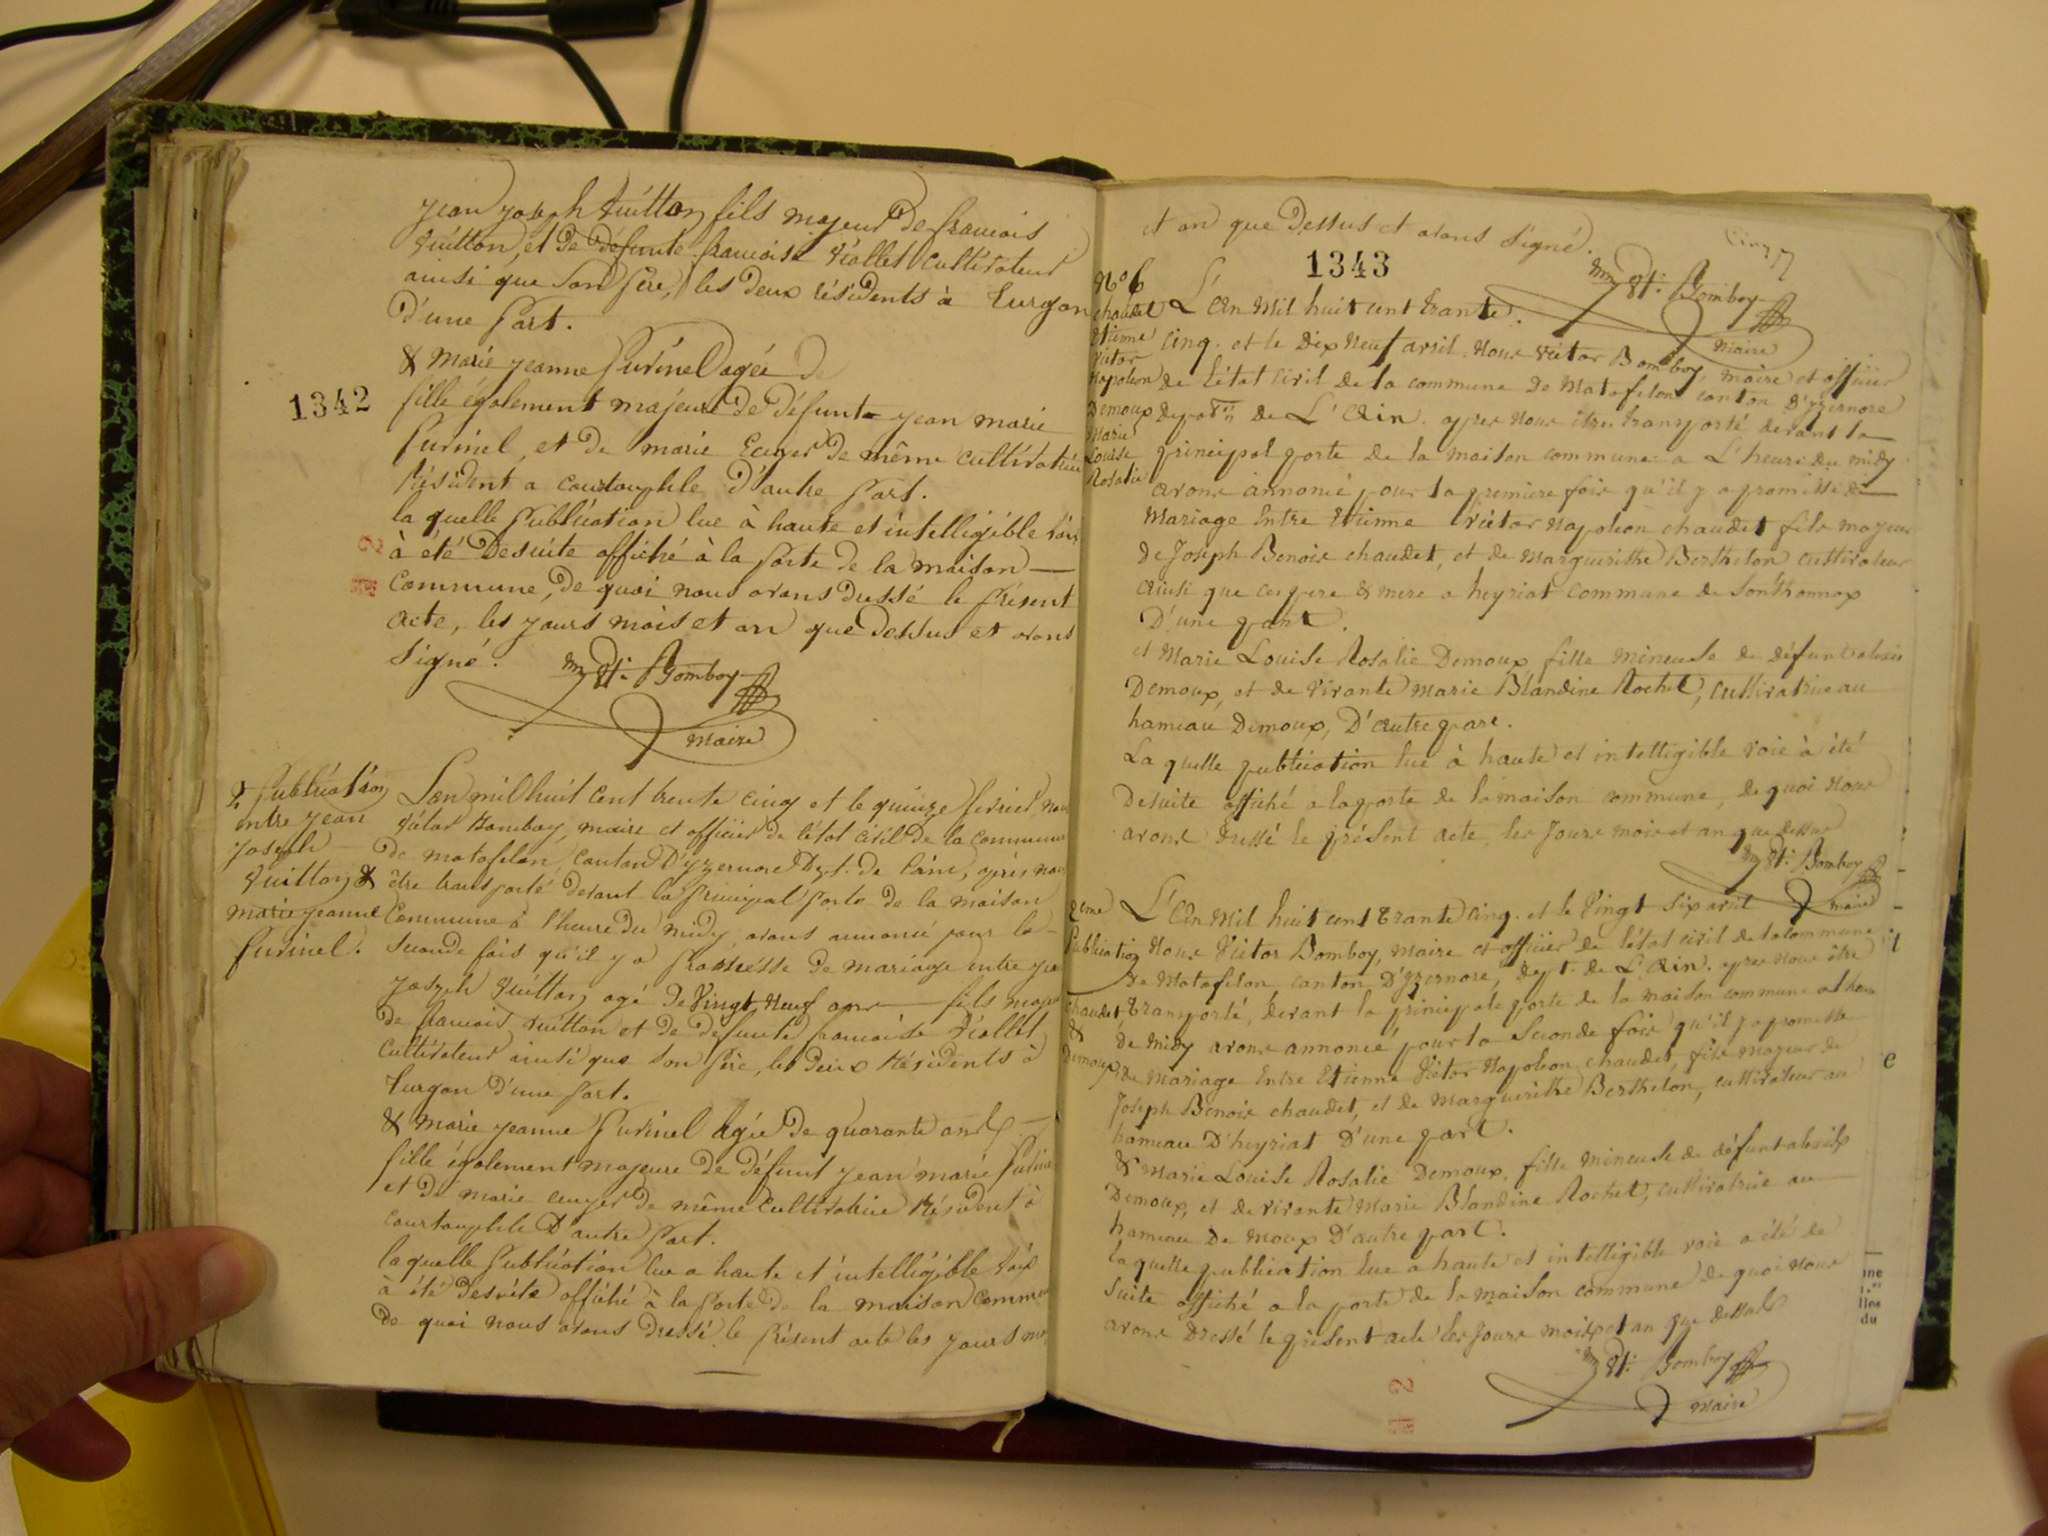 jean joseph Vuitton fils majeur de francois
Vuitton, et de défunte francoise Viollet cultivateur
ainsi que son père, les deux résidents à Turgon
D'une Part.
& marie jeanne Purinel agée de
1342
fille également majeure de défunt jean marie
Purinel, et de marie Ecuyer de même cultivatrice
Résident a courtouphle D'autre Part.
la quelle Publication lue à haute et intelligible Voix
à été Desuite affiché à la porte de la maison
Commune, de quoi nous avons dressé le présent
acte, les jours mois et an que Dessus et avons
Signé.
Bomboy
maire
2e Publication
entre jean
joseph
Vuitton &
marie jeanne
Purinel.
L'an mil huit cent trente cinq et le quinze fevrier, nous
Victor Bomboy, maire et officier de l'état civil de la commune
de matafelon, canton D'yzernore Dept. de l'ain, après nous
être transporté devant la principal porte de la maison
Commune à l'heure du midy, avons annoncé pour la
seconde fois qu'il y a Promesse de mariage entre jean
joseph Vuitton agé de Vingt Neuf ans fils majeur
de francois Vuitton et de defunte francoise Viollet
cultivateur ainsi que son père, les deux Résidents à
Turgon D'une part.
& marie jeanne Purinel Agée De quarante ans
fille également majeure de défunt jean marie Purinel
et de marie ecuyer de même cultivatrice Résident à
courtouphle D'autre Part.
laquelle Publication lue a haute et intelligible Voix
à été desuite affiché à la porte de la maison commune
de quoi nous avons dressé le présent acte les jours mois
et an que Dessus et avons signé.
Cinq
Bomboy
maire
1343
No 6
chaudet
Etienne
Victor
Napoleon
Demoux
Marie
Louise
Rosalie
L'An Mil huit cent trante
cinq. et le Dix Neuf avril. Nous Victor Bomboy, maire et officier
de l'état civil de la commune de Matafelon canton D'yzernore
depatn de L'Ain. apres nous être transporté devant la
principal porte de la maison commune a L'heure du midy
avons annoncé pour la premiere fois qu'il y a promesse de
Mariage Entre Etienne Victor Napoleon chaudet fils majeur
de Joseph Benoit chaudet, et de Marguerithe Berthelon cultivateur
Ainsi que ces pere & mere a heyriat commune de Sonthonnax
D'une part.
et Marie Louise Rosalie Demoux fille mineuse de défunt alexis
Demoux, et de vivante Marie Blandine Rochet, cultivatrice au
hameau Demoux, D'autre part.
La quelle publication lue à haute et intelligible voie à été
Desuite affiché a la porte de la maison commune, de quoi Nous
avons Dressé le présent acte, les Jours mois et an que dessus
Bomboy
maire
2eme
Publication
chaudet
&
Demoux
L'An Mil huit cent trante cinq. et le Vingt Six avril
Nous Victor Bomboy, Maire et officier de l'état civil de la commune
de Matafelon canton D'yzernore, dept. de L'Ain. apres nous être
transporté, devant la principale porte de la maison commune a L'heure
de midy avons annoncé pour la Seconde fois qu'il y a promesse
de Mariage Entre Etienne Victor Napoleon chaudet, fils majeur de
Joseph Benoit chaudet, et de Marguerithe Berthelon, cultivateur au
hameau D'heyriat D'une part.
& Marie Louise Rosalie Demoux, fille mineuse de défunt alexis
Demoux, et de vivante Marie Blandine Rochet, cultivatrice au
hameau De Moux D'autre part.
la quelle publication lue a haute et intelligible voie a été de
Suite affiché a la porte de la maison commune de quoi nous
avons Dressé le présent acte les Jours mois et an que dessus
Bomboy
Maire